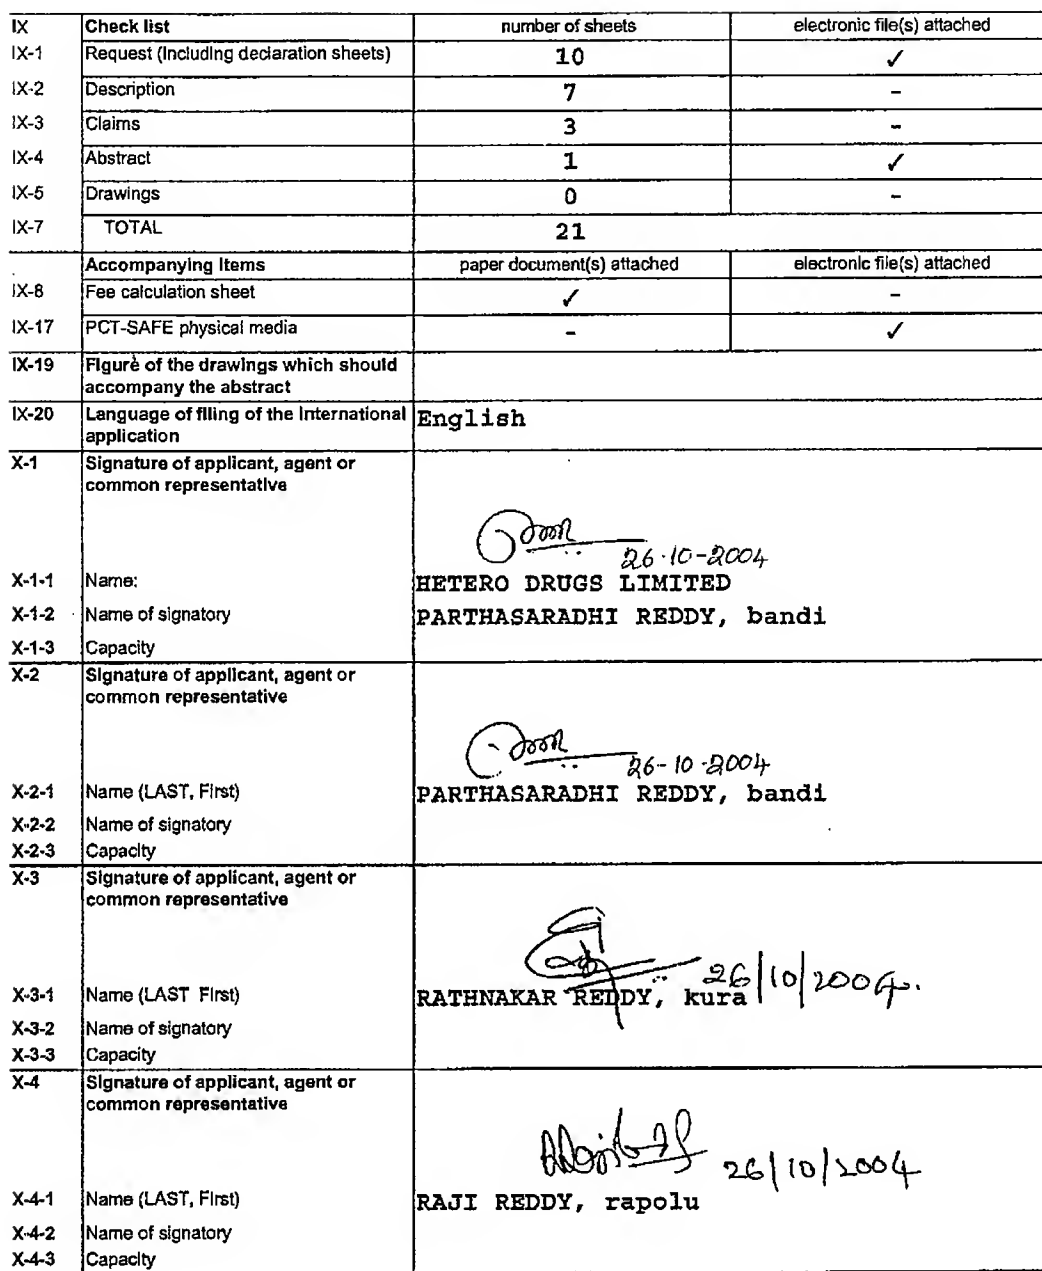 IX Check list number of sheets electronic file(s) attached
IX-1 Request (including declaration sheets) 10 ✓
IX-2 Description 7 -
IX-3 Claims 3 -
IX-4 Abstract 1 ✓
IX-5 Drawings 0 -
IX-7 TOTAL 21
Accompanying Items paper document(s) attached electronic file(s) attached
IX-8 Fee calculation sheet ✓ -
IX-17 PCT-SAFE physical media - ✓
IX-19 Figure of the drawings which should
accompany the abstract
IX-20 Language of filing of the International English
application
X-1 Signature of applicant, agent or
common representative
26-10-2004
X-1-1 Name: HETERO DRUGS LIMITED
X-1-2 Name of signatory PARTHASARADHI REDDY, bandi
X-1-3 Capacity
X-2 Signature of applicant, agent or
common representative
26-10-2004
X-2-1 Name (LAST, First) PARTHASARADHI REDDY, bandi
X-2-2 Name of signatory
X-2-3 Capacity
X-3 Signature of applicant, agent or
common representative
26/10/2004.
X-3-1 Name (LAST First) RATHNAKAR REDDY, kura
X-3-2 Name of signatory
X-3-3 Capacity
X-4 Signature of applicant, agent or
common representative
26/10/2004
X-4-1 Name (LAST, First) RAJI REDDY, rapolu
X-4-2 Name of signatory
X-4-3 Capacity